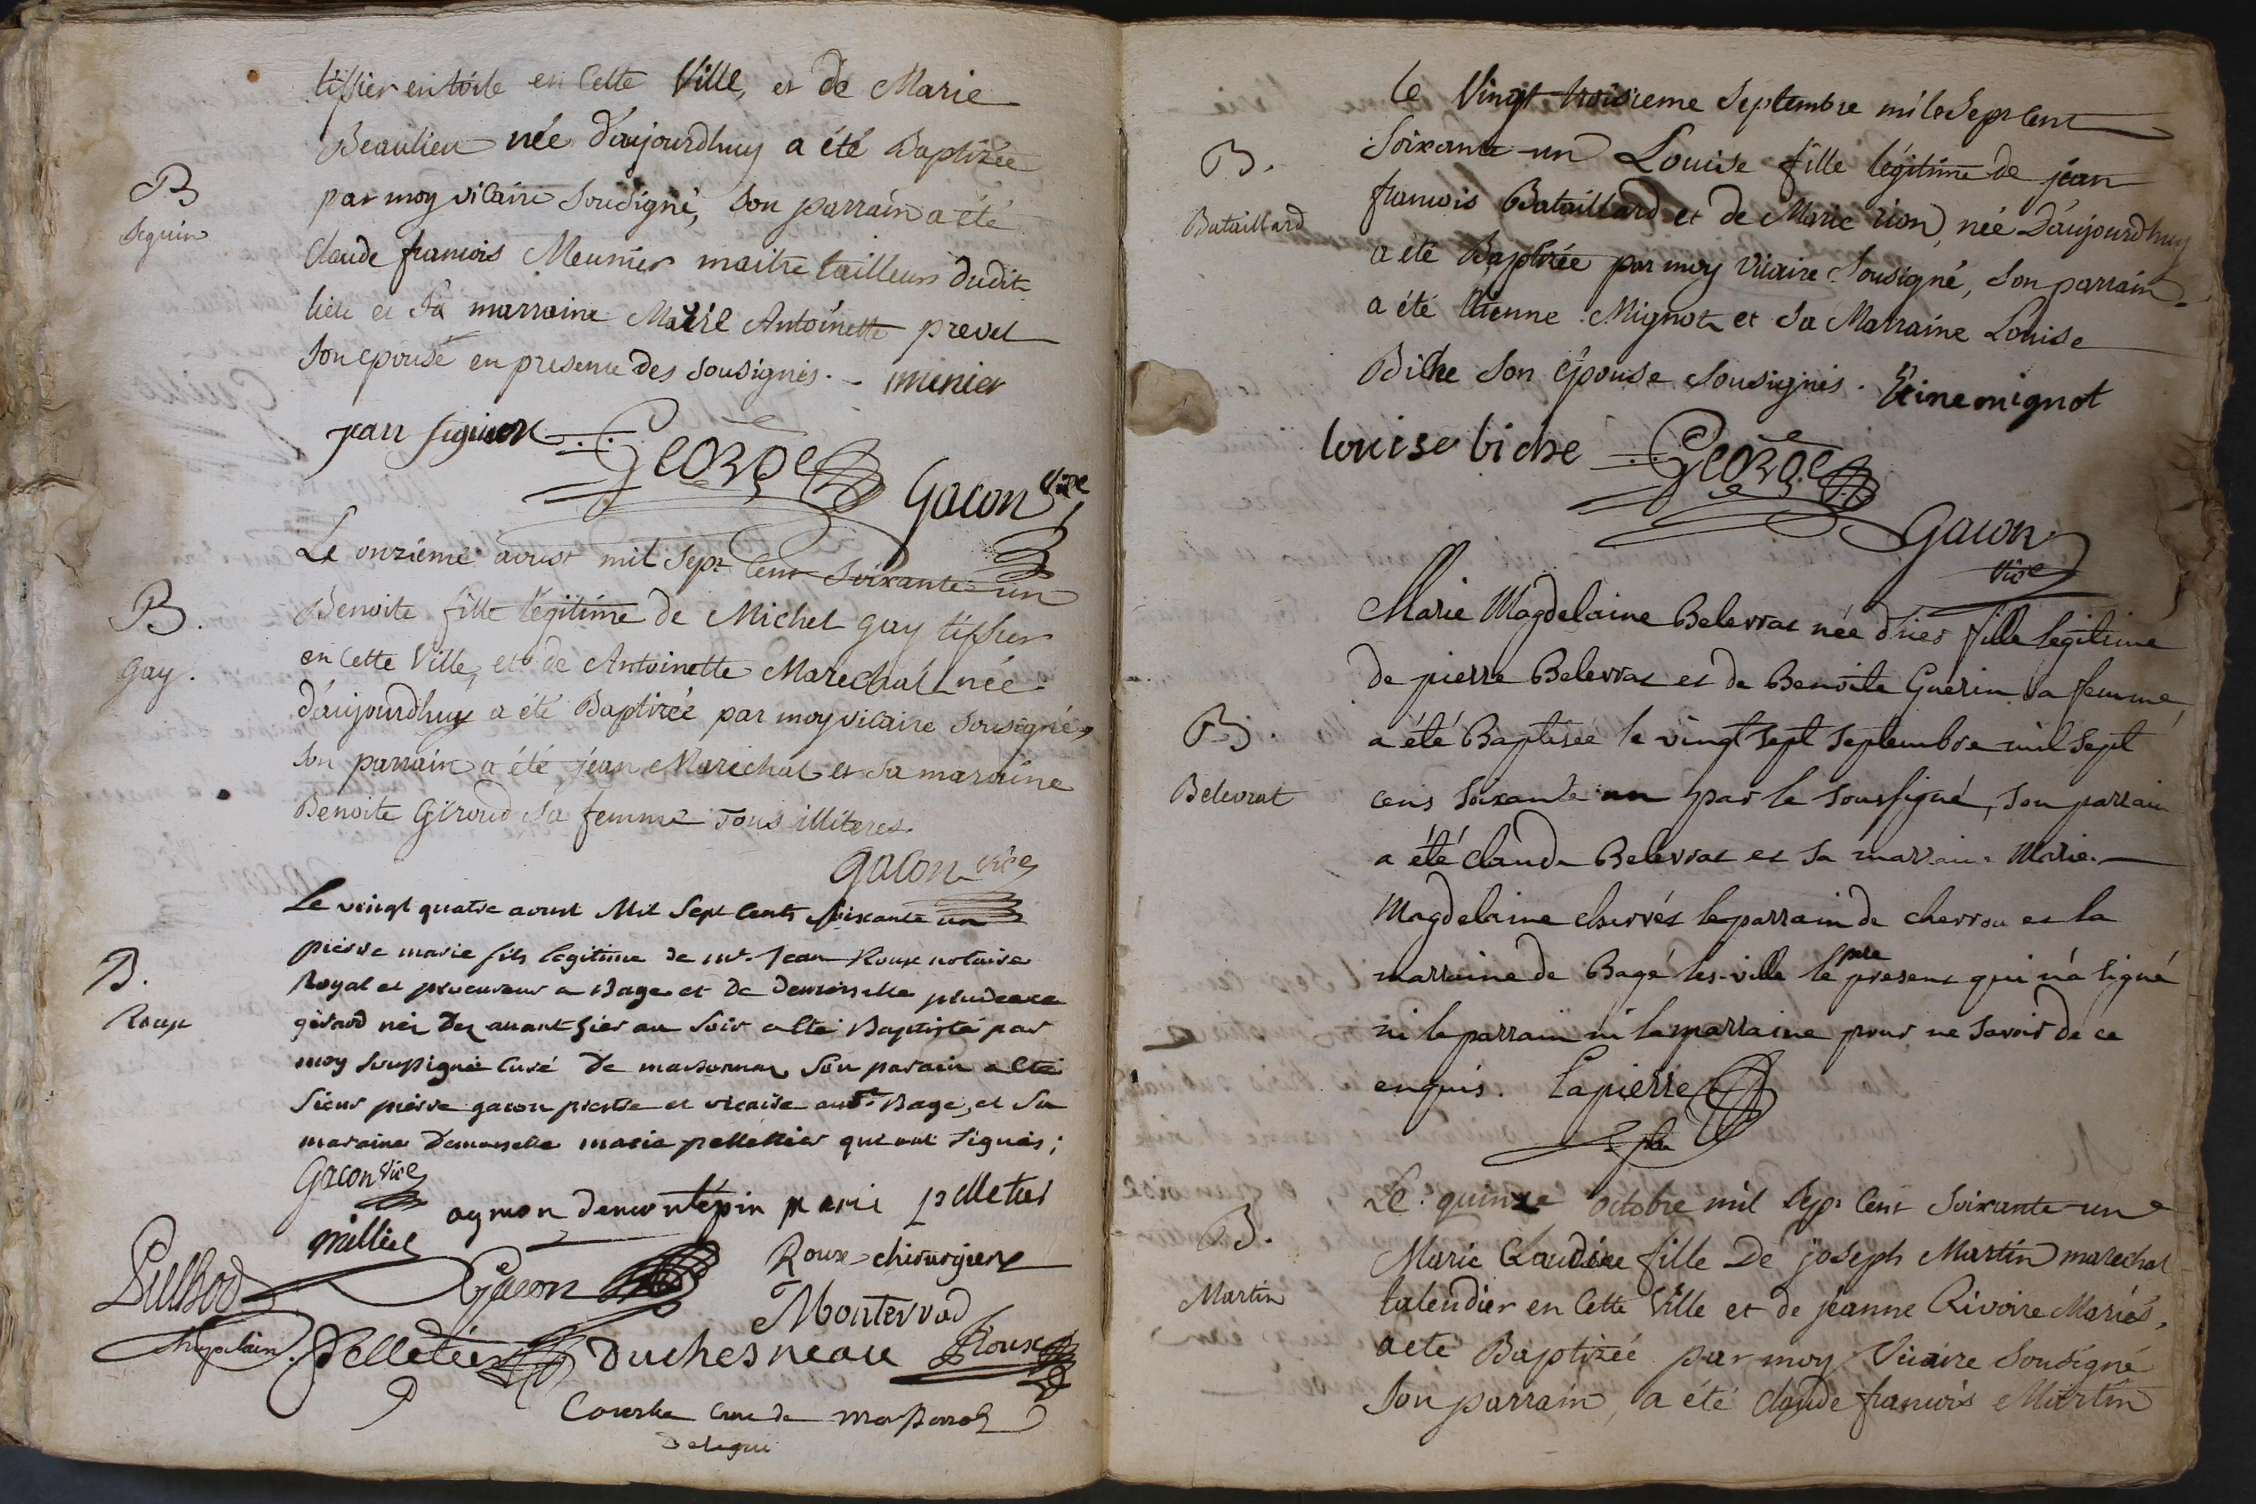 tissier en toile en Cette Ville, et de Marie
Beaulieu née d'aujourdhuy a été Baptizée
B
Seguin
par moy vicaire Sousigné, Son parrain a été
Claude francois Meunier maitre tailleur dudit
lieu et Sa marraine Marie Antoinette prevel
Son epouse en presence des Sousignés. munier
jean siguien George Gacon vice
Le onzieme aoust mil Sept Cent Soixante un
B.
Gay.
Benoite fille légitime de Michel Gay tissier
en Cette Ville, et de Antoinette Marechal née
d'aujourdhuy a été Baptizée par moy vicaire Sousigné,
Son parrain a été jean Marechal et Sa maraine
Benoite Giroud Sa femme Tous illiteres.
Gacon vice
Le vingt quatre aoust Mil Sept Cents soixante un
B.
Roux
pierre marie fils legitime de mr. Jean Roux notaire
Royal et procureur a Bage et de demoiselle prudence
girard né avant hier au Soir a été Baptisté par
moy soussigné Curé De Son parain a été
Sieur pierre gacon prestre et vicaire audt. Bage, et Sa
maraine Demoiselle marie pelletier qui ont Signés;
Gacon Vice
aymon demontépin marie pelletier
millet
Gacon Roux chirurgien
Monterrad
Pelletier Duchesneau Roux
Curé de
Le Vingt troisieme Septembre mil Sept Cent
B.
Bataillard
Soixante un Louise fille légitime de jean
francois Bataillard et de Marie rion, née D'aujourdhuy
a été Baptizée par moy Vicaire Sousigné, Son parrain
a été Etienne Mignot et Sa Marraine Louise
Biche Son épouse Sousignés. Etine mignot
louise biche George
Gacon
Vice
Marie Magdelaine Belevrat née d'hier fille legitime
de pierre Belevrat et de Benoite Guerin Sa femme
B.
Belevrat
a été Baptisée le vingt sept Septembre mil Sept
cens Soixante un par le Soussigné, Son parrain
a été claude Belevrat et Sa marraine Marie
Magdelaine le parrain de chevrou et la
marraine de Bagé les-ville le pre present qui n'a Signé
ni le parrain ni la marraine pour ne Savoir de ce
enquis. Lapierre
ptre
Le quinze Octobre mil Sept Cent Soixante un
B.
Martin
Marie Claudine fille De joseph Martin marechal
talendier en Cette Ville et de jeanne Rivoire Mariés,
a été Baptizée par moy Vicaire Sousigné
Son parrain, a été Claude francois Martin